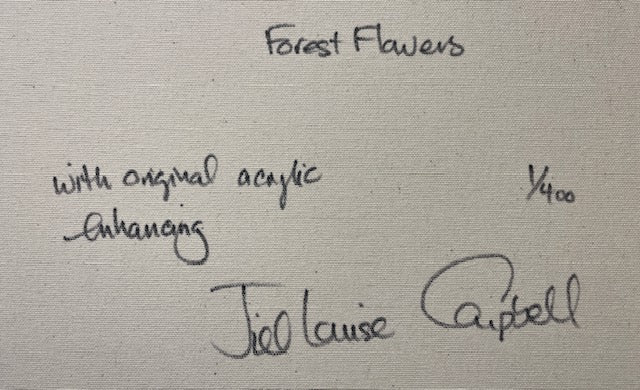 Forest Flowers
with original acrylic 1/400
enhancing
Jiel Louise Campbell